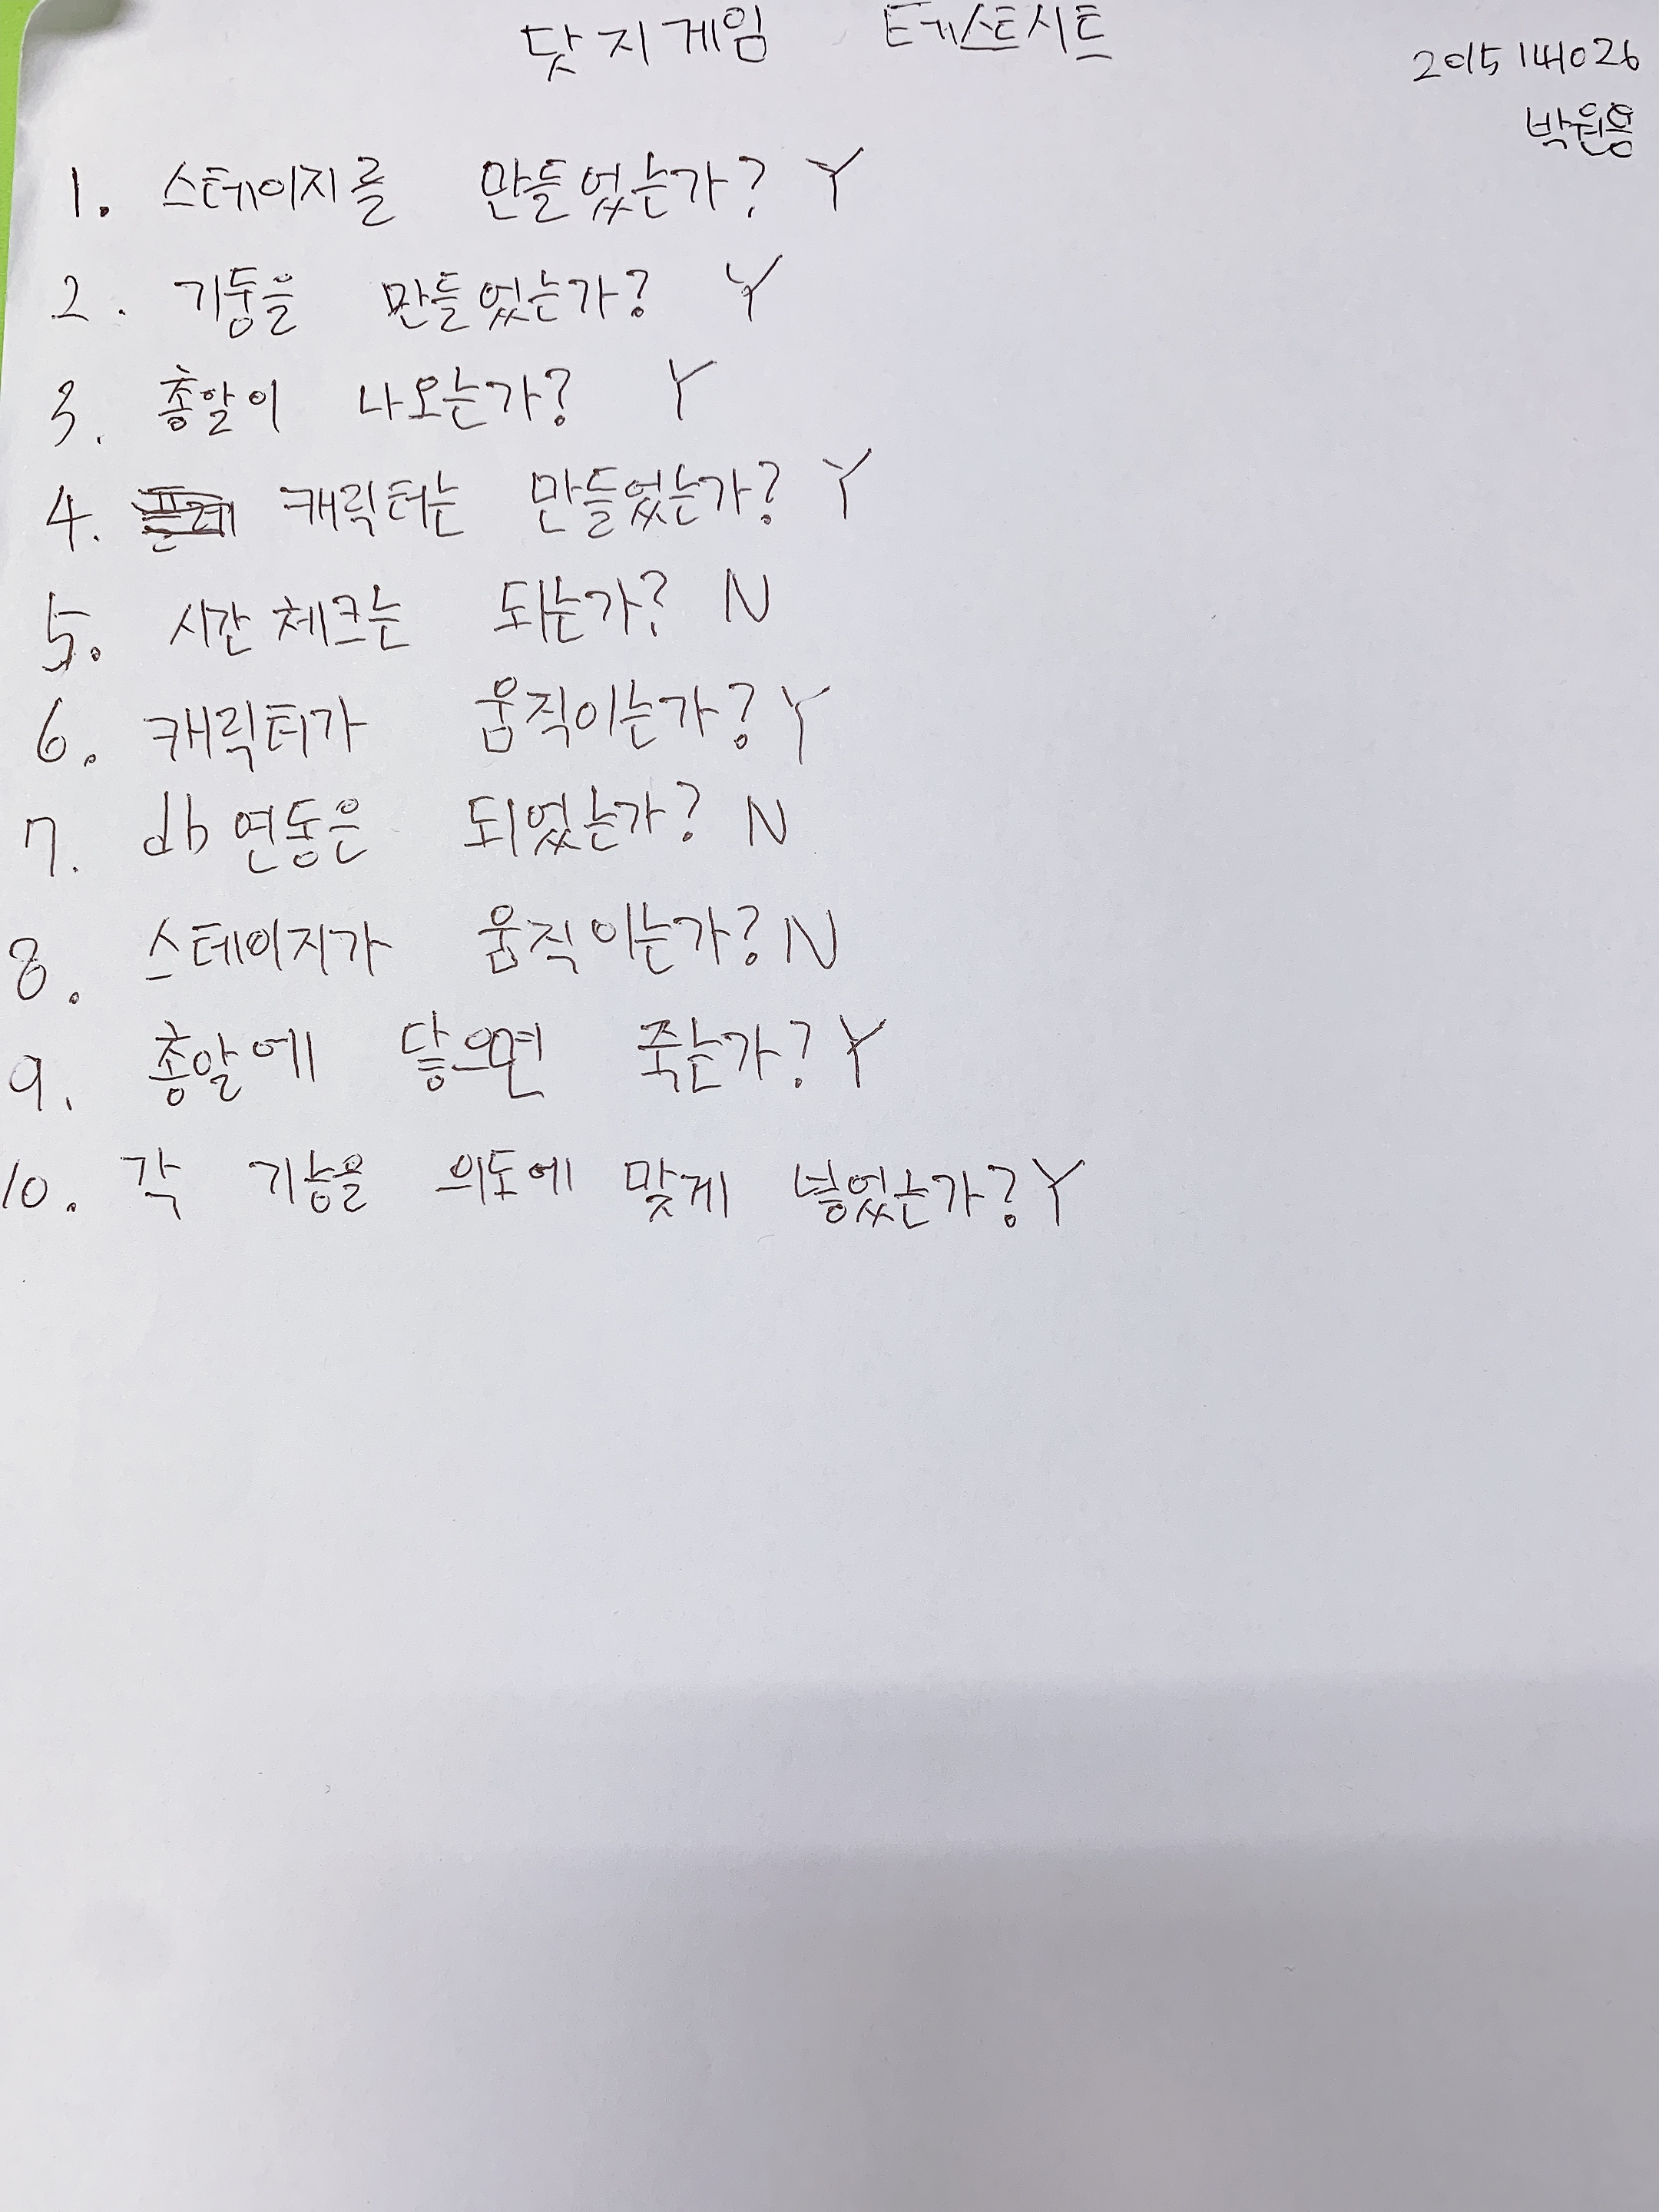 닷지게임 테스트시트
2015144026
박원용
1. 스테이지를 만들었는가? Y
2. 기둥을 만들었는가? Y
3. 총알이 나오는가? Y
4. 캐릭터는 만들었는가? Y
5. 시간체크는 되는가? N
6. 캐릭터가 움직이는가? Y
7. db연동은 되었는가? N
8. 스테이지가 움직이는가? N
9. 총알에 닿으면 죽는가? Y
10. 각 기능을 의도에 맞게 넣었는가? Y